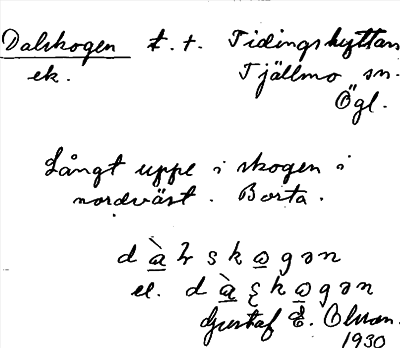 Dalskogen t. t. Tidingshyttan
ek. Tjällmo sn.
Ögl.
Långt uppe i skogen i
nordväst. Borta.
d à lr s k ω g ə n
el. d à ʂ k ω g ə n
Gustaf E. Olsson.
1930